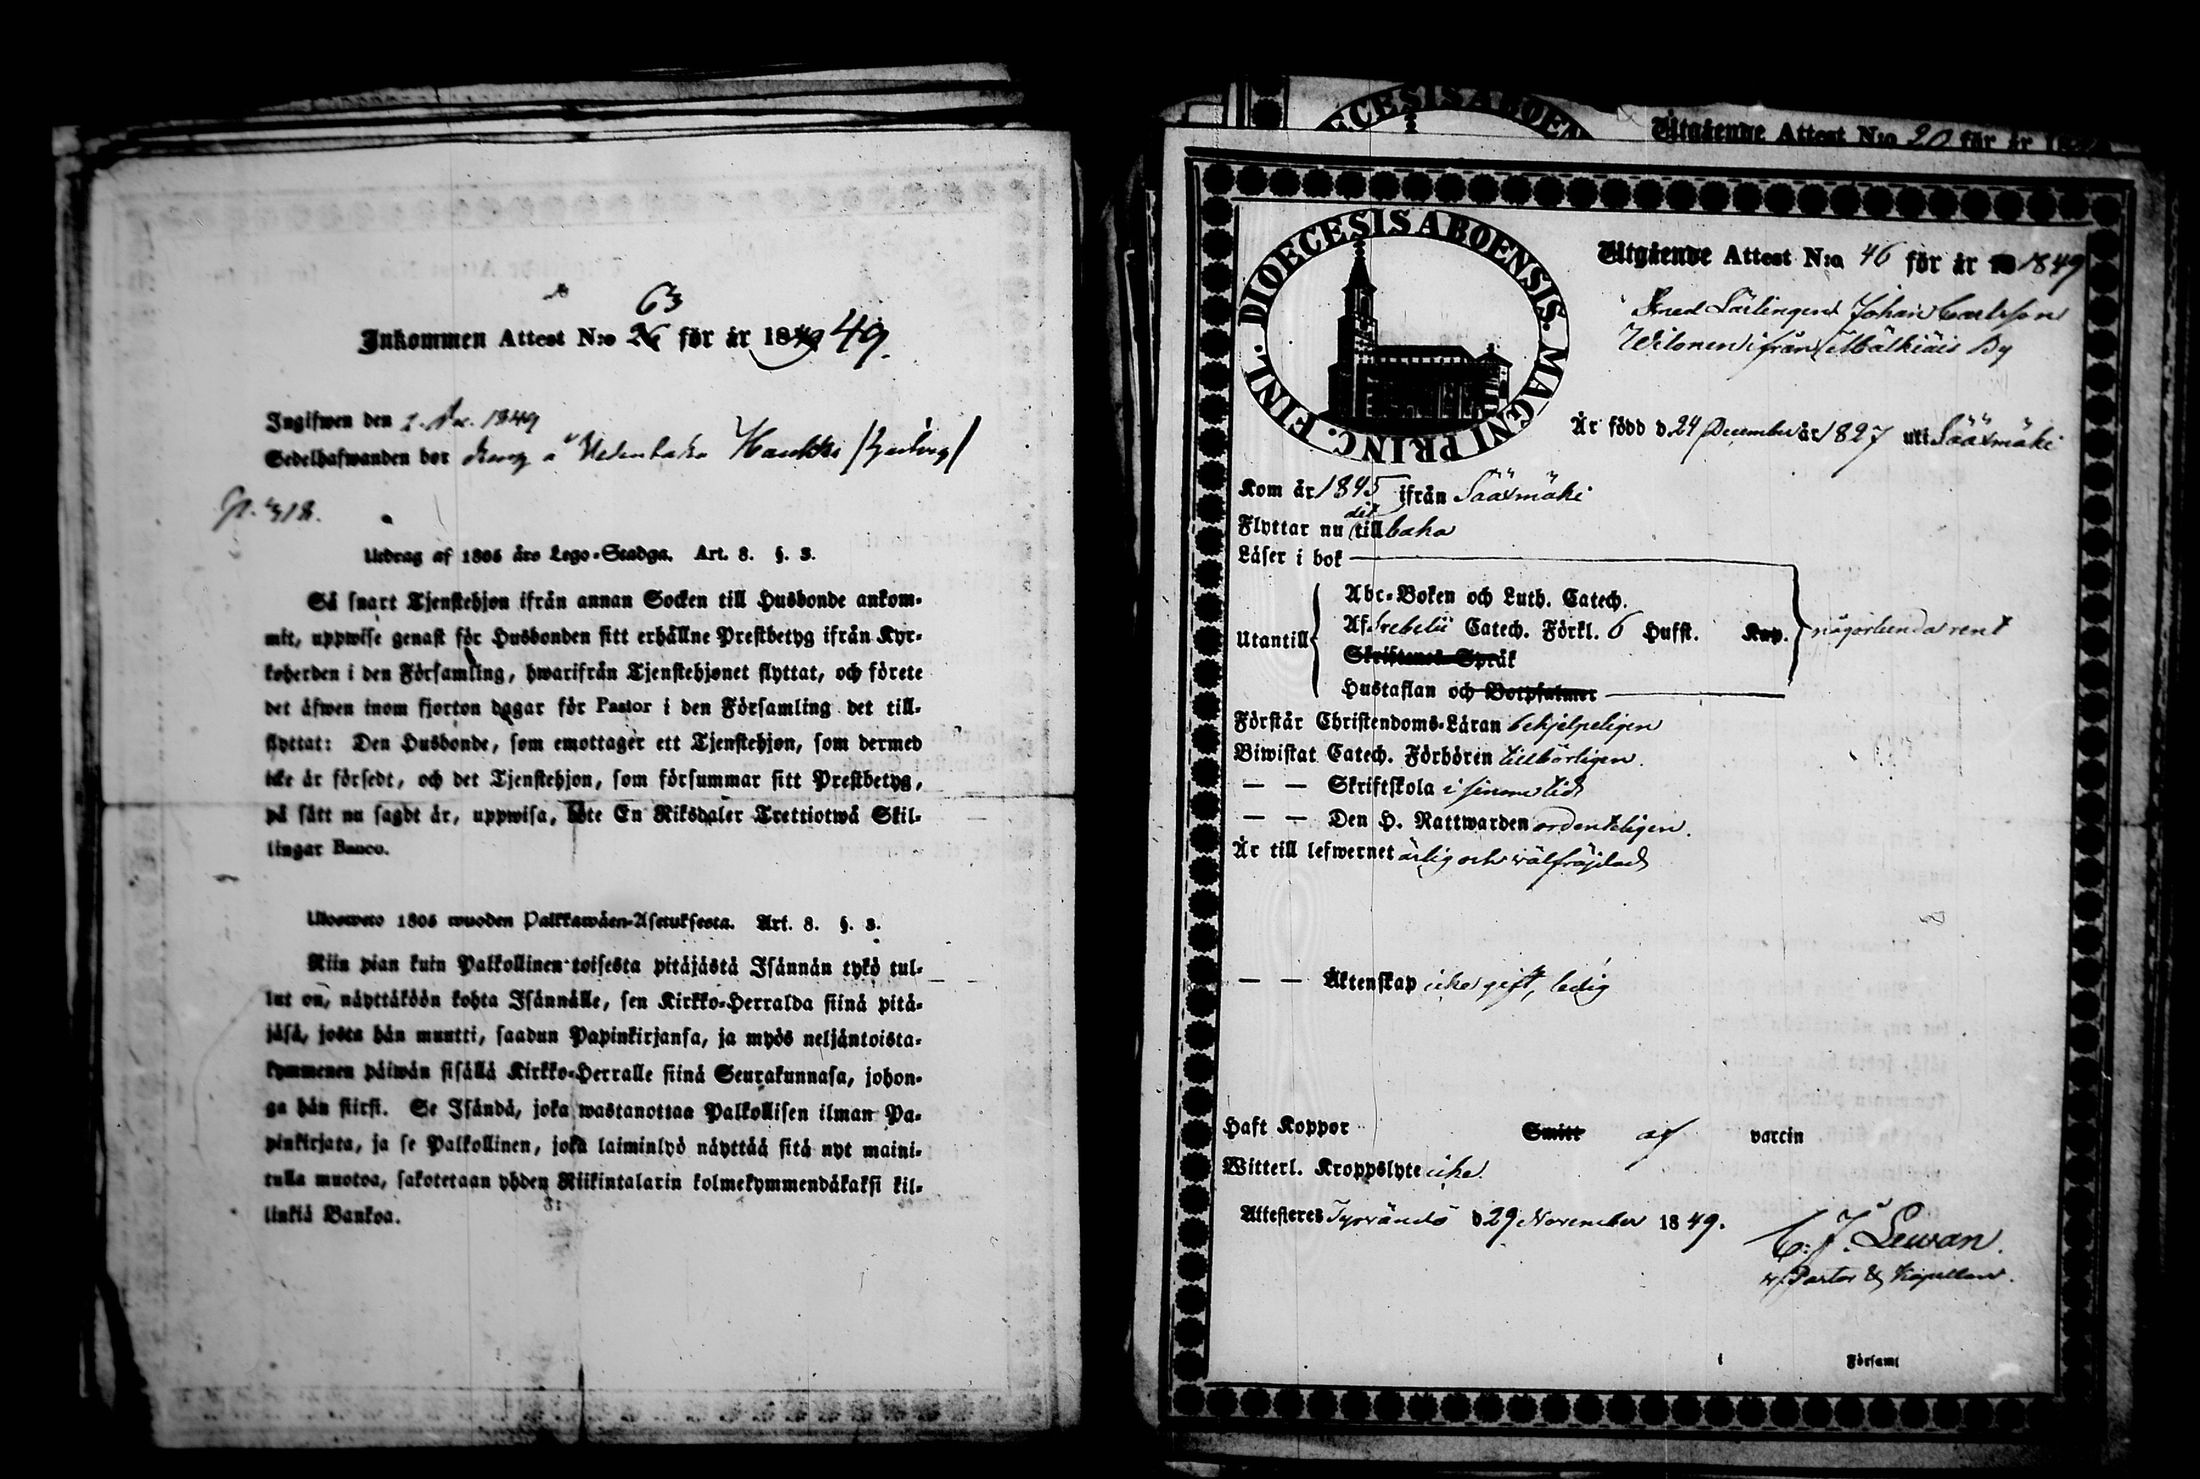 63
Inkommen Attest N:o för år 1849.
Ingifwen den 1849
Sedelhafwanden bor
Utdrag af 1805 års Lego-Stadga. Art. 8. §. 3.
Så snart Tjenstehjon ifrån annan Socken till Husbonde ankom-
mit, uppwise genast för Husbonden sitt erhållne Prestbetyg ifrån Kyr-
koherden i den Församling, hwarifrån Tjenstehjonet flyttat, och förete
det äfwen inom fjorton dagar för Pastor i den Församling det till-
flyttat: Den Husbonde, som emottager ett Tjenstehjon, som dermed
icke är försedt, och det Tjenstehjon, som försummar sitt Prestbetyg,
på sätt nu sagdt är, uppwisa, böte En Riksdaler Trettiotwå Skil-
lingar Banco.
Ulosweto 1805 wuoden Palkkawäen-Asetuksesta. Art. 8. §. 3.
Niin pian kuin Palkollinen toisesta pitäjästä Isännän tykö tul-
lut on, näyttäköön kohta Isännälle, sen Kirkko-Herralda siinä pitä-
jäsä, josta hän muutti, saadun Papinkirjansa, ja myös neljäntoista-
kymmenen päiwän sisällä Kirkko-Herralle siinä Seurakunnasa, johon-
ga hän siirsi. Se Isändä, joka wastanottaa Palkollisen ilman Pa-
pinkirjata, ja se Palkollinen, joka laiminlyö näyttää sitä nyt maini-
tulla muotoa, sakotetaan yhden Riikintalarin kolmekymmendäkaksi kil-
linkiä Bankoa.
DIOECESIS ABOEN
Utgående Attest N:o 20 för år
DIOECESIS ABOENSIS. MAGNI PRINC. FINL.
Utgående Attest N:o 46 för år 1849
Smed Lärlingen Johan Carlsson
Wilonen ifrån Mälkiäis By
Är född d 24 December år 1827 uti Sääxmäki
Kom år 1845 ifrån Sääxmäki
Flyttar nu dit tillbaka
Läser i bok
Utantill
Abc-Boken och Luth. Catech.
Af Svebelii Catech. Förkl. 6 Hufst. Kap. någorlunda rent
Skriftenes Språk
Hustaflan och Botpsalmer
Förstår Christendoms-Läran behjelpeligen
Biwistat Catech. Förhören tillbörligen.
— — Skriftskola i sinom tid
— — Den H. Nattwarden ordenteligen.
Är till lefwernet ärlig och wälfräjdad
— — Äktenskap icke gift, ledig
Haft Koppor Smitt af vaccin
Witterl. Kroppslyte icke
Attesteres Tyrvändö d 29 November 1849.
C. J. Lewan.
v. Pastor & Kapellan.
i Församl